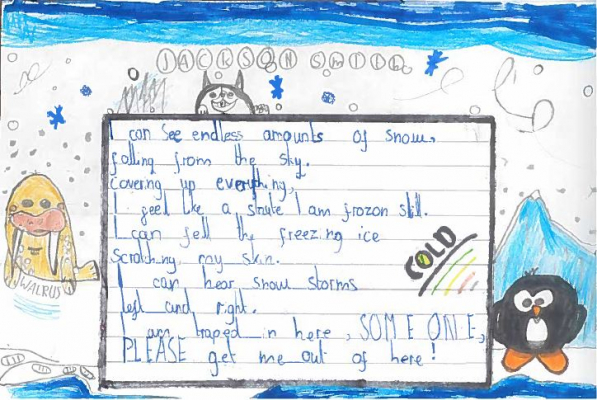 JACKSON SMITH
I can see endless amounts of snow,
falling from the sky.
covering up everything,
I feel like a statute I am frozon still.
I can fell the freezing ice
Scratching my skin.
I can hear snow storms
left and right.
I am traped in here, SOMEONE,
PLEASE get me out of here!
COLD
WALRUS